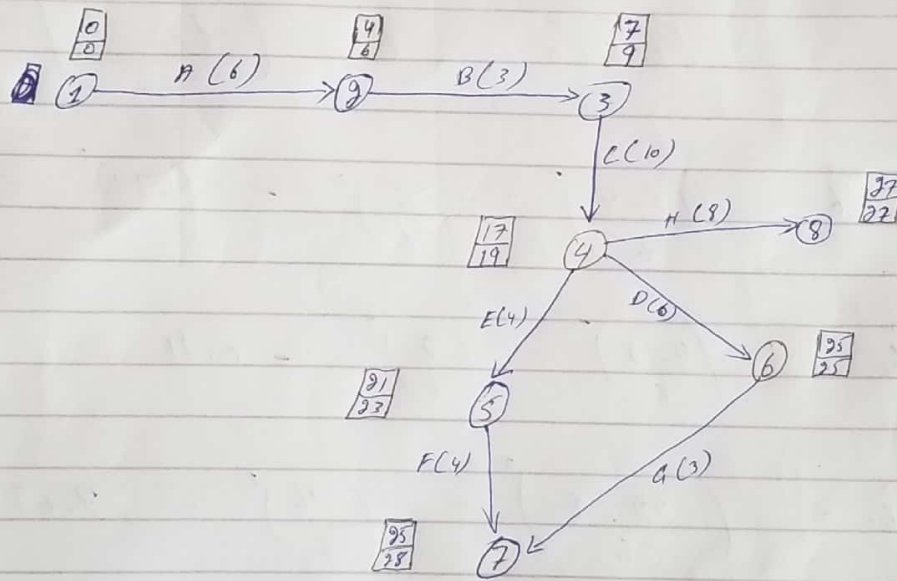 0 4 7
0 6 9
1 A (6) 2 B(3) 3
C(10)
17 H(8) 8 27
19 4 27
E(4) D(6)
6 25
25
21
23 5
F(4) G(3)
25
28 7